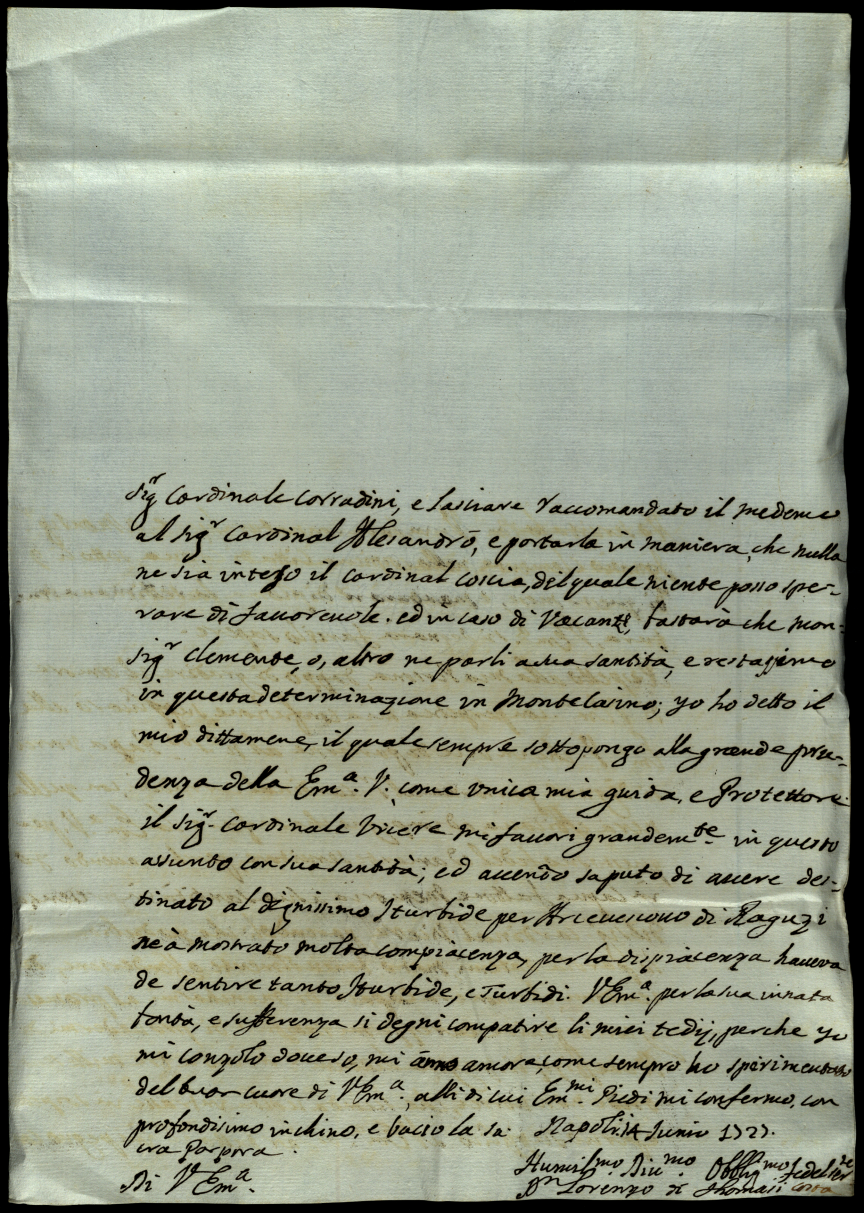 Sig.r Cardinale Corradini, e lasciare raccomandato il medemo
al Sig.r Cardinal Alesandrõ, e portarla in maniera, che nulla
ne sia inteso il Cardinal Coscia, del quale niente posso spe-
rare di favorevole. ed in caso di Vacante, bastarà che Mon-
sig.r Clemente, o, altro ne parli a sua santità, e
in questa determinazione in Montecasino; yo ho detto il
mio dittamene, il quale sempre sottopongo alla grande pru-
denza della Em.a V. come unica mia guida, e Protettore
il Sig.r Cardinale Vicere mi favori grandem.te in questo
assunto con sua santità; ed avendo saputo di avere des-
tinato al dignissimo Iturbide per Arcivescovo di Raguzi
ne à mostrato molta compiacenza, per la dispiacenza haveva
de sentire tanto Iturbide, e Turbidi. V Em.a per la sua innata
bontà, e sufferenza si degni compatire li miei tedij, perche yo
mi conzolo mi amore, come sempro ho sperimentato
del buon cuore di V Em.a, alli di cui Em.mi Piedi mi confermo, con
profondisimo inchino, e bacio la sa- Napoli 14 Junio 1727.
cra Porpora.
Di V Em.a Humil.mo Div.mo Obblig.mo
D.n Lorenzo de Thomasi